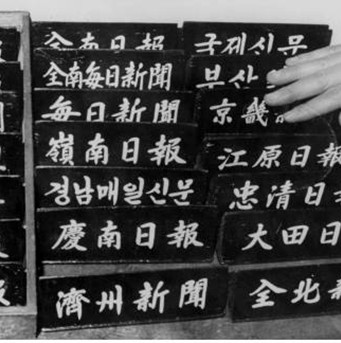 全南日報
全南每日新聞
每日新聞
嶺南日報
경남매일신문
慶南日報
濟州新聞
국제신문
부산
京畿
江原日報
忠清日
大田日
全北新